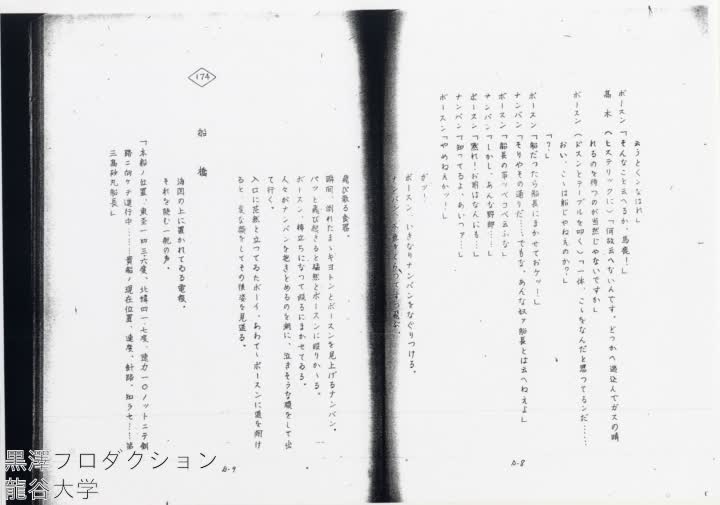 云うとくンなはれ」
ボースン「そんなこと云へるか、馬鹿!」
高木（ヒステリックに）「何故云へないんです。どっかへ逃込んでガスの晴
れるのを待つのが当然じゃないですか」
ボースン（ドスンとテーブルを叩く）「一体、こゝをなんだと思ってるンだ……
おい、こゝは船じゃねえのか?」
「?」
ボースン「船だったら船長にまかせておケッ!」
ナンバン「そりやその通りだ……でもな、あんな奴ァ船長とは云へねえよ」
ボースン「船長の事ッベコベ云ふな」
ナンバン「しかし、あんな野郎……」
ボースン「黙れ!お前はなんにも……」
ナンバン「知ってるよ、あいつァ…」
ボースン「やめねえかッ!」
ガッ!
ボースン、いきなりナンバンをなぐりつける。
飛び散る食器。
瞬間、倒れたまゝキヨトンとボースンを見上げるナンバン。
パッと飛び起きると猛然とボースンに殴りかゝる。
ボースン、棒立ちになって殴るにまかせてゐる。
人々がナンバンを抱きとめるのを潮に、泣きそうな顔をして出
て行く。
入口に茫然と立ってゐたボーイ、あわてゝボースンに道を開け
ると、変な顔をしてその後姿を見送る。
D-8
174
船橋
海図の上に置かれてゐる電報。
それを読む一郎の声。
「本船ノ位置、東経一四三六度、北緯四一・七度、速力一〇ノットニテ釧
路ニ向ケテ進行中……貴船ノ現在位置、速度、針路、知ラセ……第
三高砂丸船長」
D-9
黒澤プロダクション
龍谷大学